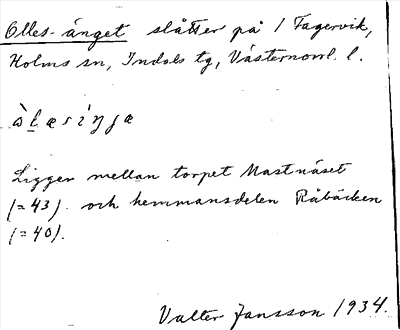 Olles-änget slåtter på 1 Fagervik,
Holms sn, Indals tg, Västernorrl. l.
Ligger mellan torpet Mastnäset
(=43) och hemmansdelen Råbäcken
(=40).
Valter Jansson 1934.